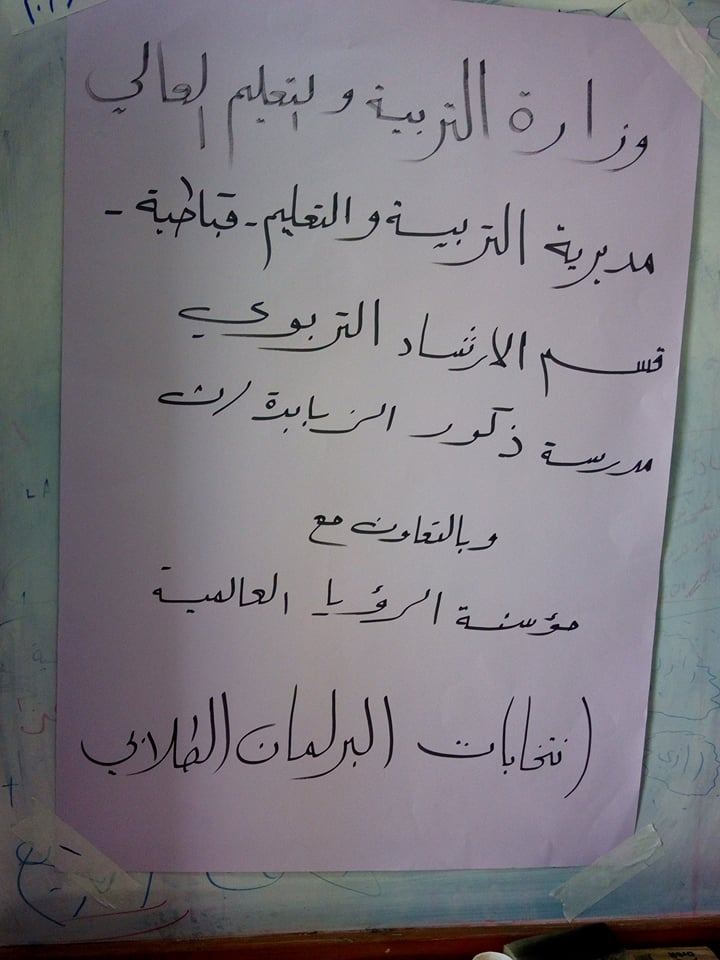 وزارة التربية والتعليم العالي
مديرية التربية والتعليم - قباطية -
قسم الارشاد التربوي
مدرسة ذكور الزبابدة / ث
وبالتعاون مع
مؤسسة الرؤيا العالمية
انتخابات البرلمان الطلابي